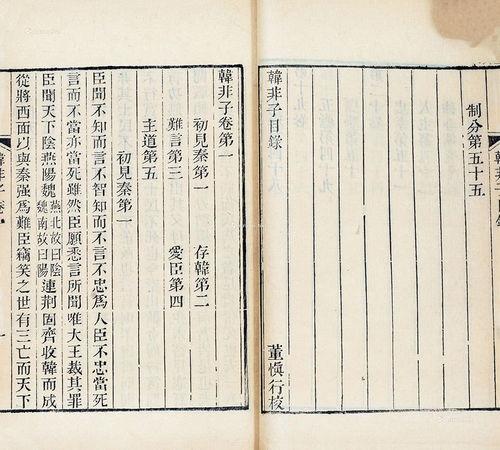 制分第五十五
韓非子目錄
董慎行校
韓非子卷第一
初見秦第一 存韓第二
難言第三 愛臣第四
主道第五
初見秦第一
臣聞不知而言不智知而不言不忠為人臣不忠當死
言而不當亦當死雖然臣願悉言所聞唯大王裁其罪
臣聞天下陰燕陽魏燕北故曰陰魏南故曰陽連荆固齊收韓而成
從將西面以與秦強為難臣竊笑之世有三亡而天下